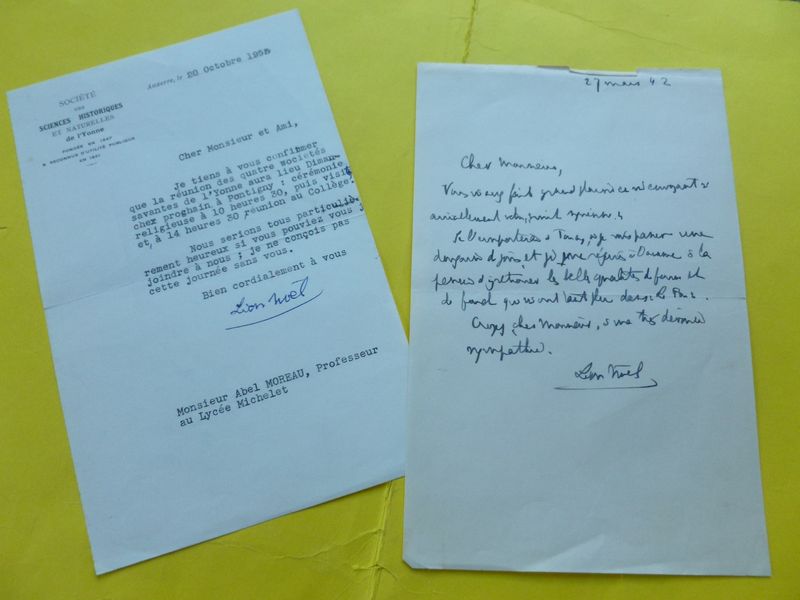 SOCIÉTÉ
DES
SCIENCES HISTORIQUES
ET NATURELLES
de l'Yonne
FONDÉE EN 1847
& RECONNUE D'UTILITÉ PUBLIQUE
EN 1861
Auxerre, le 20 Octobre 195
Cher Monsieur et Ami,
Je tiens à vous confirmer
que la réunion des quatre sociétés
savantes de l'Yonne aura lieu Diman-
chez proghain à Pontigny : cérémonie
religieuse à 10 heures 30, puis visite
et, à 14 heures 30 réunion au Collège.
Nous serions tous particuliè-
rement heureux si vous pouviez vous
joindre à nous ; je ne conçois pas
cette journée sans vous.
Bien cordialement à vous
Léon Noël
Monsieur Abel MOREAU, Professeur
au Lycée Michelet
27 mars 42
Cher Monsieur,
Vous m'avez fait grand plaisir en m'envoyant
amicalement
Je à
et je me à la
pensée d'y retrouver les belles qualités de forme et
de fond qui
Croyez, cher Monsieur, à ma très dévouée
sympathie.
Léon Noël